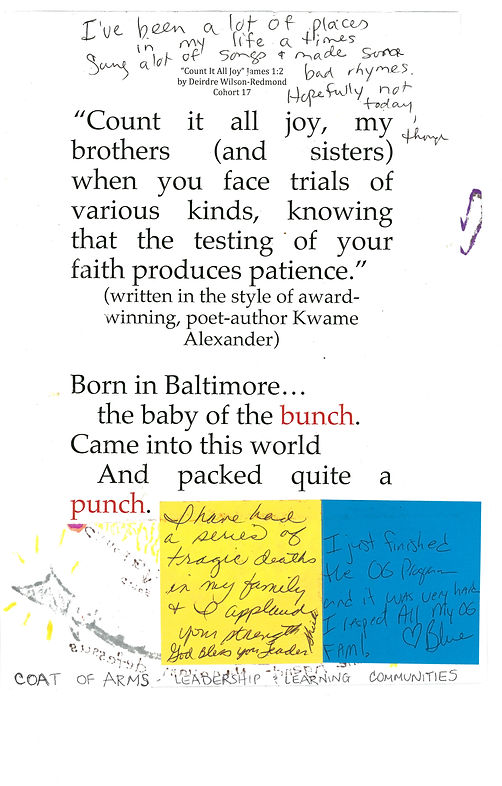 I've been a lot of places
in my life & times
Sung alot of songs & made some
bad rhymes.
Hopefully not
today,
though
"Count It All Joy" James 1:2
by Deirdre Wilson-Redmond
Cohort 17
“Count it all joy, my
brothers (and sisters)
when you face trials of
various kinds, knowing
that the testing of your
faith produces patience.”
(written in the style of award-
winning, poet-author Kwame
Alexander)
Born in Baltimore…
the baby of the bunch.
Came into this world
And packed quite a
punch.
I have had
a series of
tragic deaths
in my family
& I applaud
your strength
God Bless you Leader
I just finished
the OG Program
and it was very hard
I respect All My OG
FAM!
Blue
COAT OF ARMS - LEADERSHIP & LEARNING COMMUNITIES